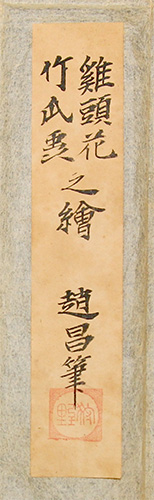 雞頭花
竹
之繪
趙昌筆